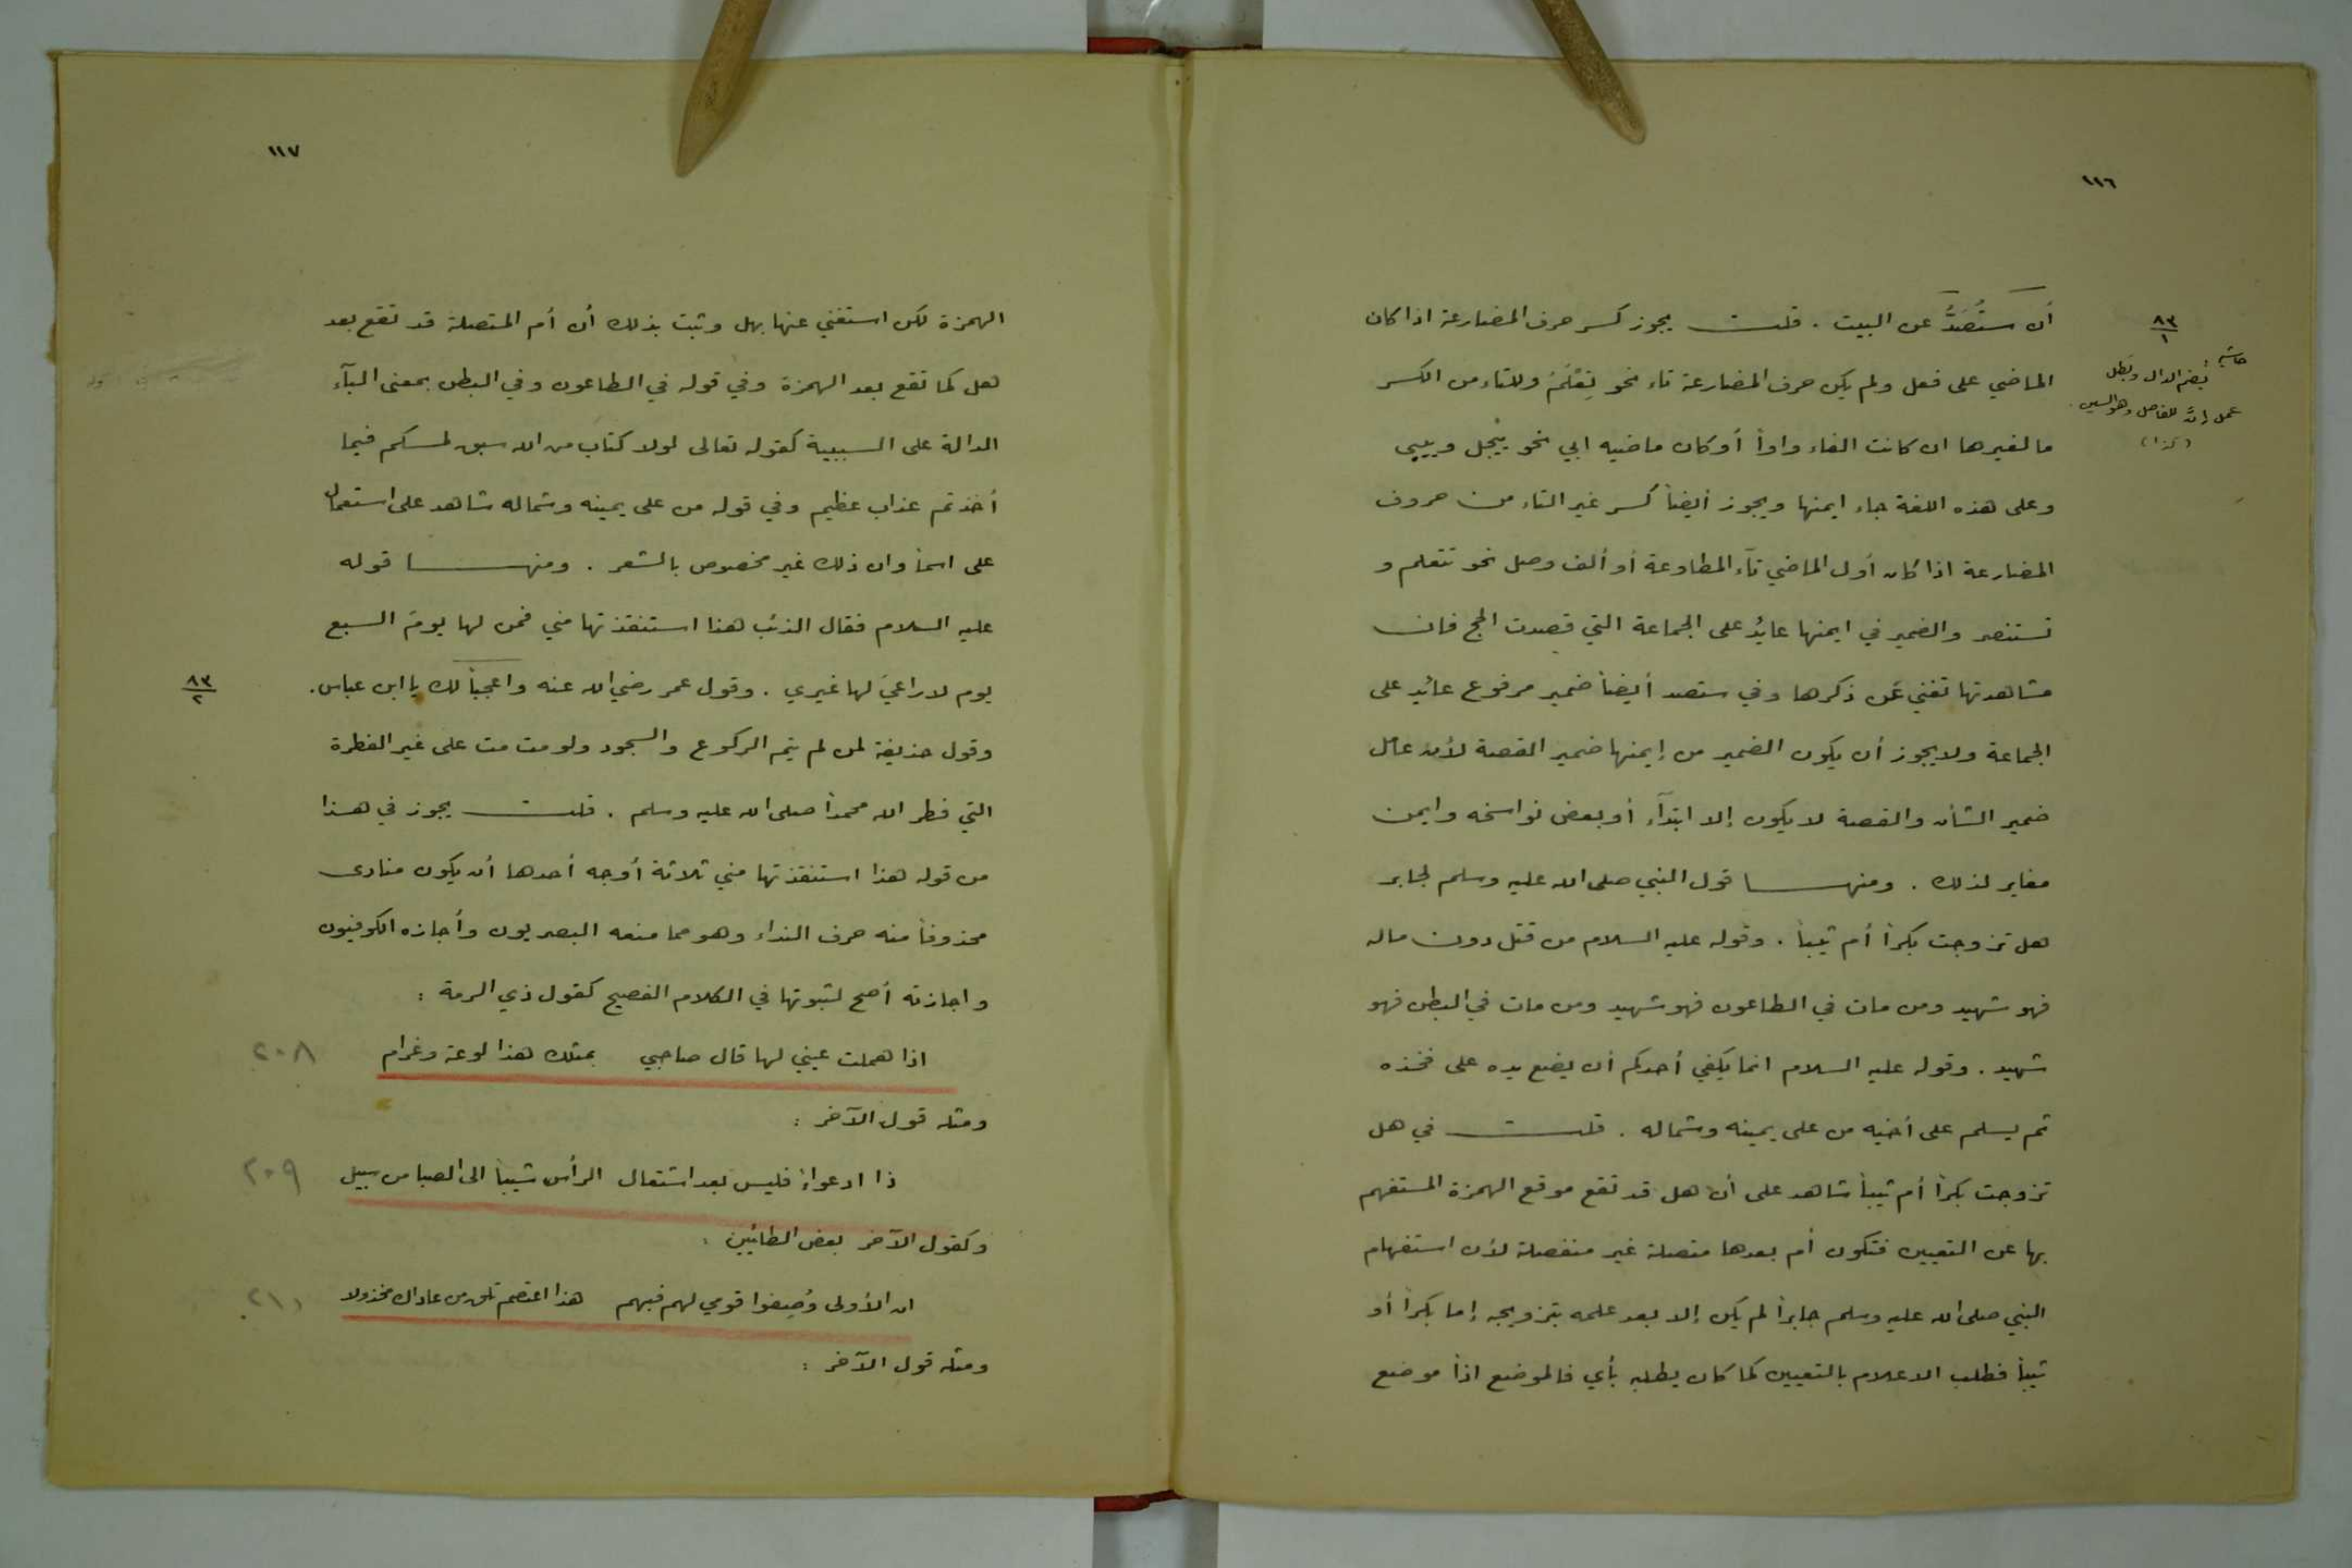 ١١٦
أن ستُصَدُّ عن البيت . قلت يجوز كسر حرف المضارعة اذا كان
الماضي على فعل ولم يكن حرف المضارعة تاء نحو تِعْلَمُ وللتاء من الكسر
ما لغيرها ان كانت الفاء واوا أو كان ماضيه ابي نحو ييْجل وييبى
وعلى هذه اللغة جاء ايمنها ويجوز أيضاً كسر غير التاء من حروف
المضارعة اذا كان أول الماضي تآء المطاوعة أو ألف وصل نحو تتعلم و
تستنصر والضمير في ايمنها عائد على الجماعة التي قصدت الحج فان
مشاهدتها تغني عن ذكرها وفي ستصد أيضاً ضمير مرفوع عائد على
الجماعة ولا يجوز أن يكون الضمير من إيمنها ضمير القصة لأن عامل
ضمير الشأن والقصة لا يكون إلا ابتدآء أو بعض نواسخه وايمن
مغاير لذلك . ومنها قول النبي صلى الله عليه وسلم لجابر
هل تزوجت بكراً أم ثيباً . وقوله عليه السلام من قتل دون ماله
فهو شهيد ومن مات في الطاعون فهو شهيد ومن مات في البطن فهو
شهيد . وقوله عليه السلام انما يكفي أحدكم أن يضع يده على فخذه
ثم يسلم على أخيه من على يمينه وشماله . قلت في هل
تزوجت بكراً أم ثيباً شاهد على أن هل قد تقع موقع الهمزة المستفهم
بها عن التعيين فتكون أم بعدها متصلة غير منفصلة لأن استفهام
النبي صلى الله عليه وسلم جابراً لم يكن إلا بعد علمه بتزويجه إما بكراً أو
ثيباً فطلب الاعلام بالتعيين كما كان يطلبه بأي فالموضع اذاً موضع
٨٣
١
حاشية :
بضم الدال وبَطَل
عمل إنَّ للفاصل وهو السين .
(كذا)
١١٧
الهمزة لكن استغني عنها بهل وثبت بذلك أن أم المتصلة قد تقع بعد
هل كما تقع بعد الهمزة وفي قوله في الطاعون وفي البطن بمعنى البآء
الدالة على السببية كقوله تعالى لولا كتاب من الله سبق لمسكم فيما
أخذتم عذاب عظيم وفي قوله من على يمينه وشماله شاهد على استعمال
على اسماً وان ذلك غير مخصوص بالشعر . ومنها قوله
عليه السلام فقال الذئب هذا استنقذتها مني فمن لها يومَ السبع
يوم لا راعيَ لها غيري . وقول عمر رضي الله عنه واعجباً لك يا ابن عباس .
وقول حذيفة لمن لم يتم الركوع والسجود ولو مت مت على غير الفطرة
التي فطر الله محمداً صلى الله عليه وسلم . قلت يجوز في هذا
من قوله هذا استنقذتها مني ثلاثة أوجه أحدها أن يكون منادى
محذوفاً منه حرف النداء وهو مما منعه البصريون وأجازه الكوفيون
واجازته أصح لثبوتها في الكلام الفصيح كقول ذي الرمة :
اذا هملت عيني لها قال صاحبي بمثلك هذا لوعة وغرام ٢٠٨
ومثله قول الآخر :
ذا ادعواءً فليس بعد اشتعال الرأس شيباً الى الصبا من سبيل ٢٠٩
وكقول الآخر بعض الطائيين :
ان الأولى وُصِفوا قومي لهم فبهم هذا اعتصم تلق من عاداك مخذولا ٢١٠
ومثله قول الآخر :
٨٣
٢